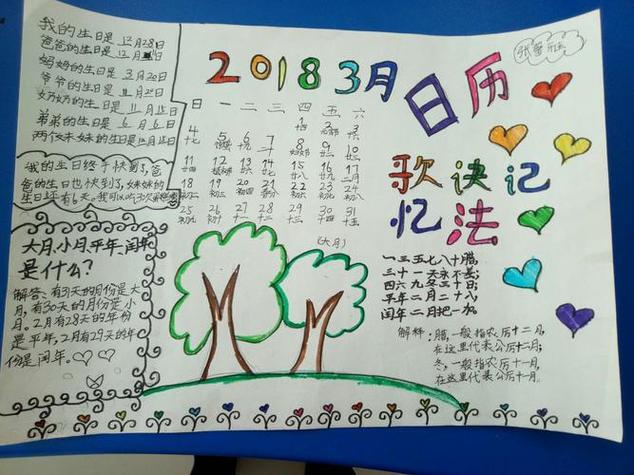 我的生日是12月28日
爸爸的生日是12月
妈妈的生日是3月20日
爷爷的生日是11月21日
奶奶的生日是11月15日
弟弟的生日是6月6日
两个妹妹的生日是12月15日
我的生日终于快到了,爸
爸的生日也快到了,妹妹的
生日还有6天。我可以吃3次
大月、小月、平年、闰年
是什么?
解答:有31天的月份是大
月,有30天的月份是小
月。2月有28天的年份
是平年,2月有29天的年
份是闰年。
2018 3月
日历
日 一 二 三 四 五 六
1 2 3
十四 十六
4 5 6 7 8 9 10
十七 十九 二十 妇女节 廿二 廿三
11 12 13 14 15 16 17
廿四 植树节 廿六 廿七 廿八 廿九 二月
18 19 20 21 22 23 24
初二 初三 初四 春分 初六 初七 初八
25 26 27 28 29 30 31
初九 初十 十一 十二 十三 十四 十五
(大月)
歌诀记
忆法
一三五七八十腊,
三十一天永不差;
四六九冬三十日;
平年二月二十八,
闰年二月把一加。
解释:腊,一般指农历十二月,
在这里代表公历十二月;
冬,一般指农历十一月,
在这里代表公历十一月。